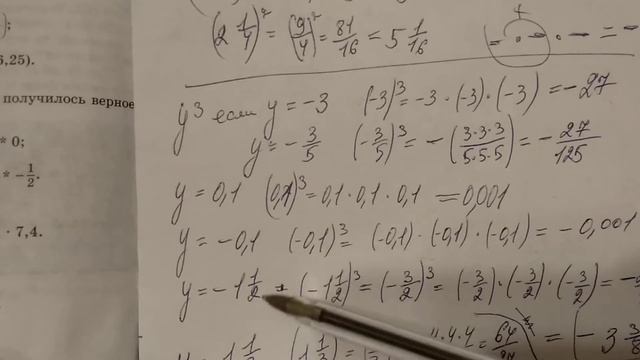 );
6,25).
получилось верное
* 0;
* -1/2.
· 7,4.
(2 1/4)² = (9/4)² = 81/16 = 5 1/16
y³ если y = -3 (-3)³ = -3 · (-3) · (-3) = -27
y = -3/5 (-3/5)³ = -(3·3·3/5·5·5) = -27/125
y = 0,1 (0,1)³ = 0,1 · 0,1 · 0,1 = 0,001
y = -0,1 (-0,1)³ = (-0,1) · (-0,1) · (-0,1) = -0,001
y = -1 1/2 (-1 1/2)³ = (-3/2)³ = (-3/2) · (-3/2) · (-3/2) = -